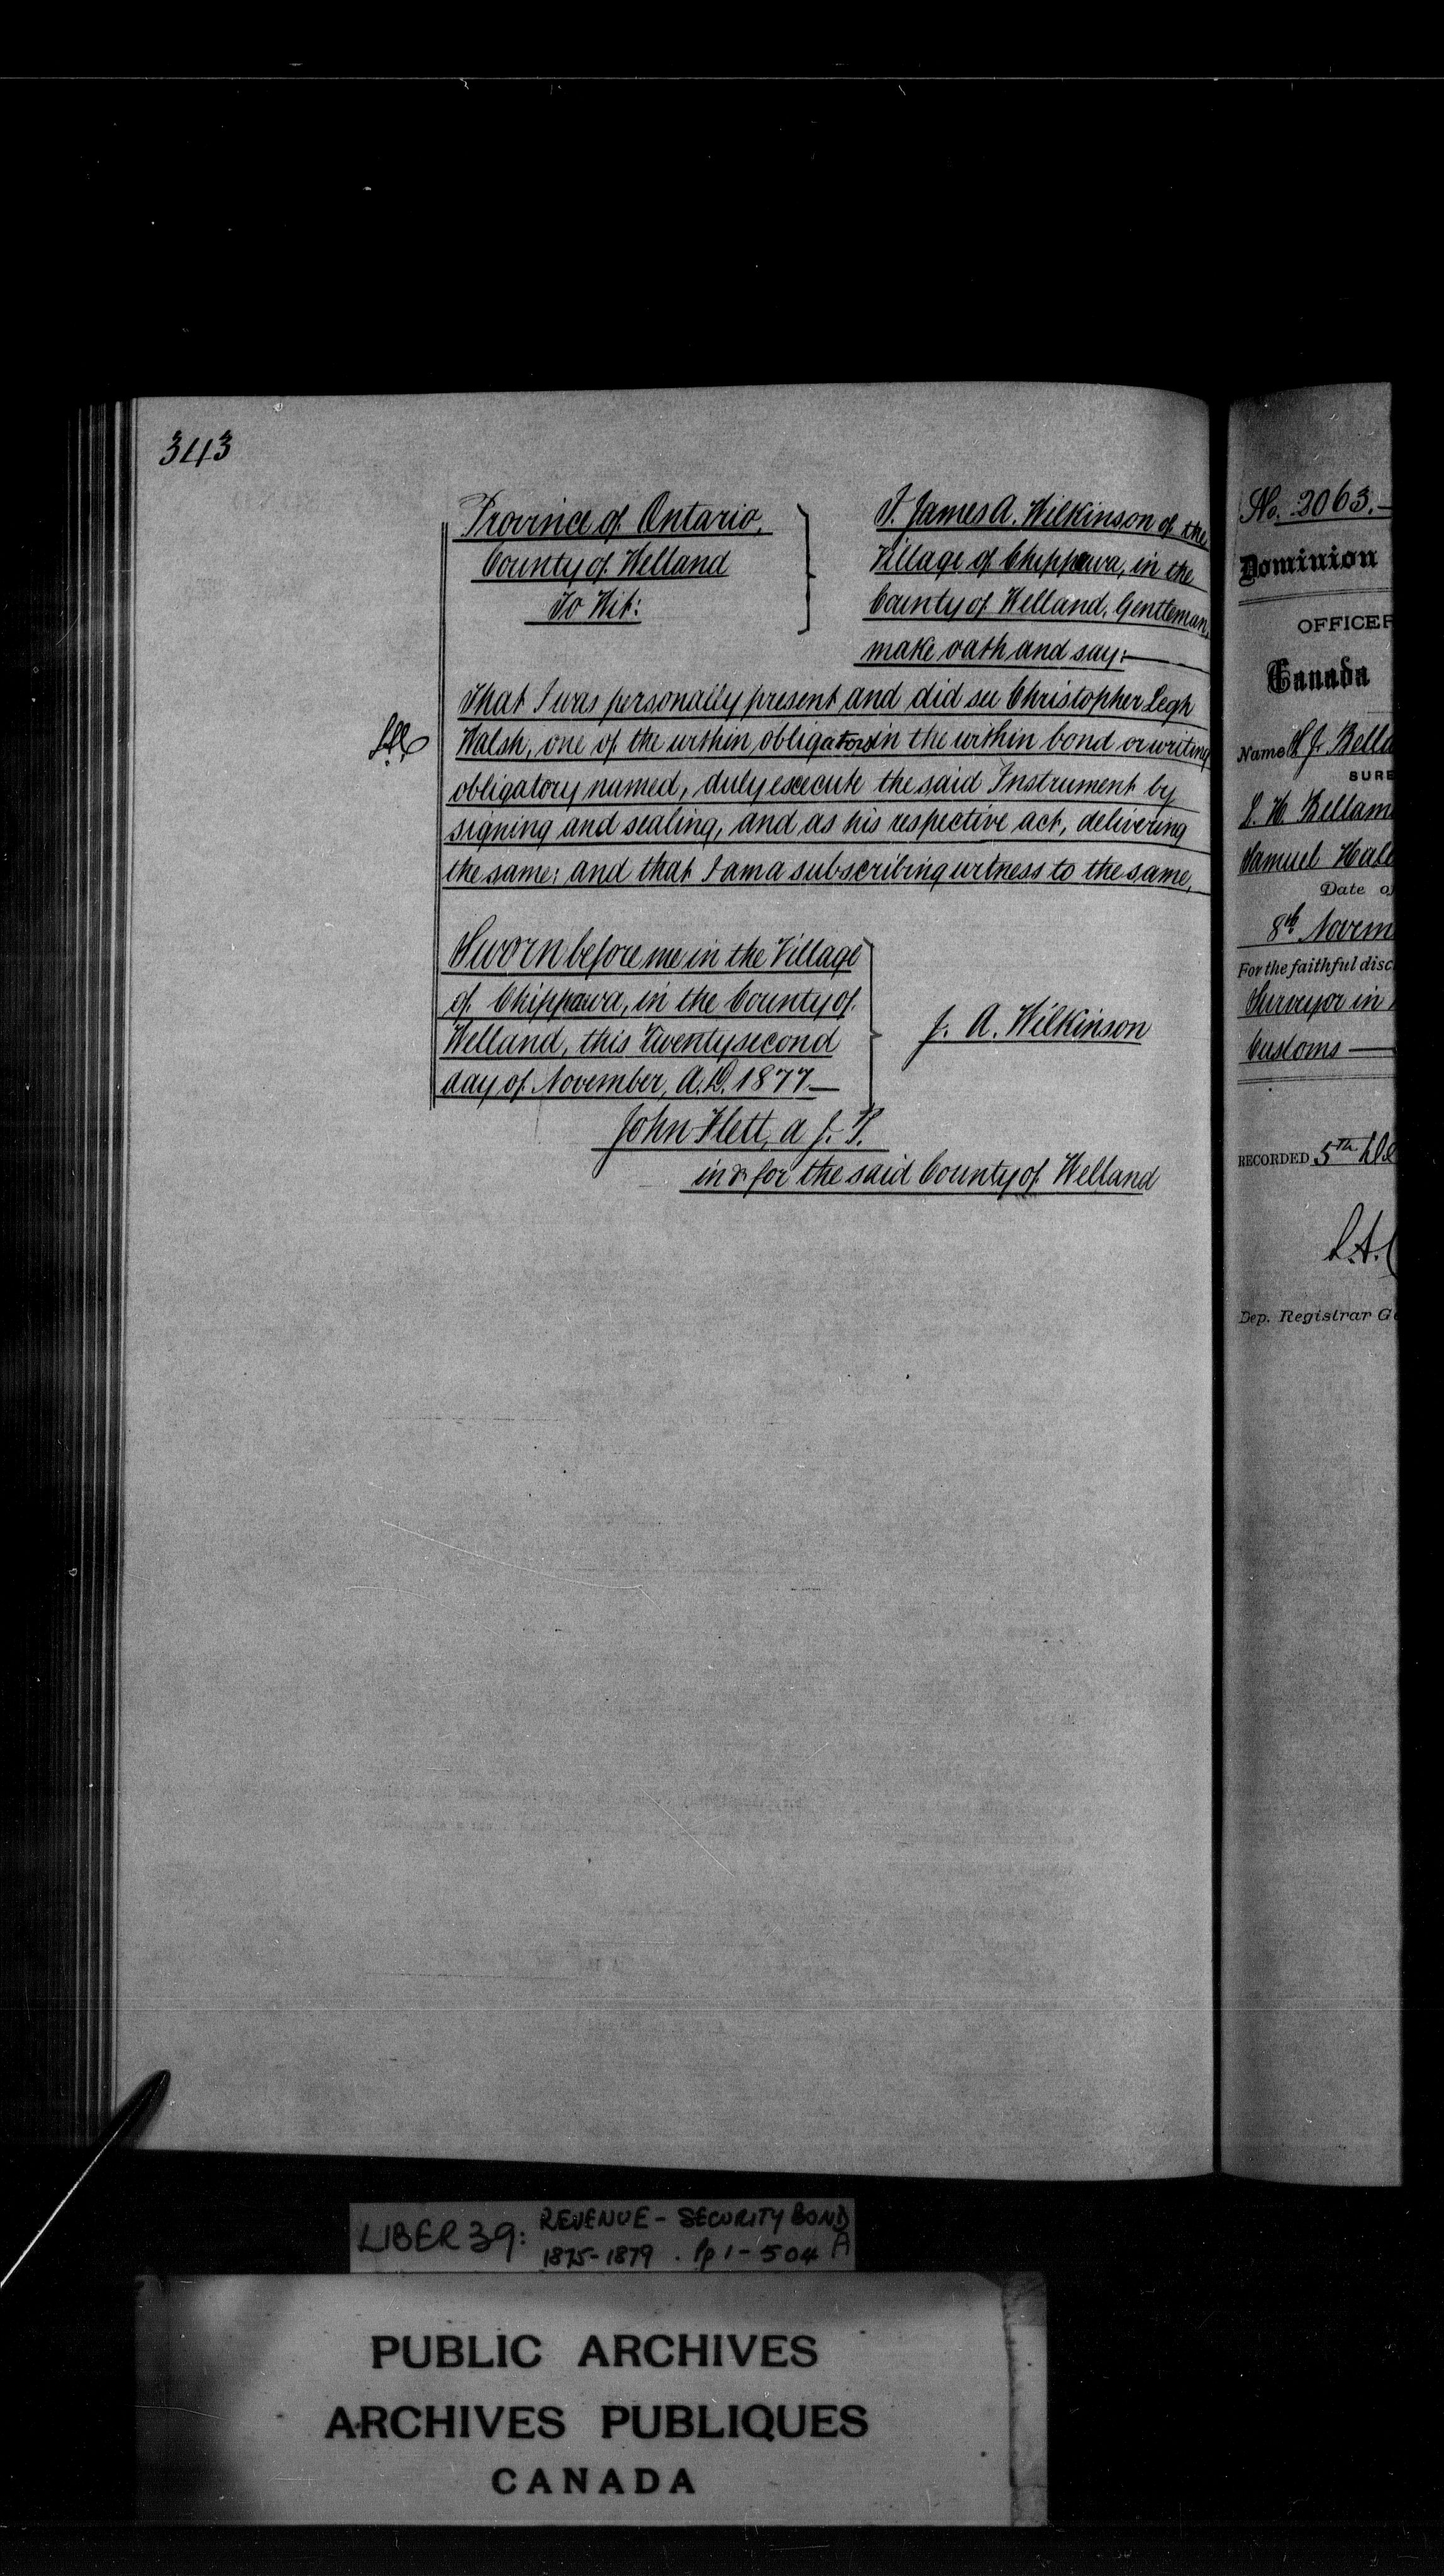 343
Province of Ontario,
County of Welland
To Wit:
I. James A. Wilkinson of the
Village of Chippawa, in the
County of Welland, Gentleman,
make oath and say:—
That I was personally present and did see Christopher Legh
Walsh, one of the within obligators in the within bond or writing
obligatory named, duly execute the said Instrument by
signing and sealing, and as his respective act, delivering
the same; and that I am a subscribing witness to the same,
Sworn before me in the Village
of Chippawa, in the County of
Welland, this Twenty second
day of November, A.D. 1877—
J. A. Wilkinson
John Flett, a J. P.
in & for the said County of Welland
No. 3063.—
Dominion
OFFICER
Canada
Name H J. Bella
SURE
L. H. Bellam
Samuel Hale
Date o
8th Novem
For the faithful disc
Surveyor in
Customs —
RECORDED 5th De
L.A.
Dep. Registrar G
LIBER 39: REVENUE - SECURITY BOND
1875-1879 . Pp 1 - 504 A
PUBLIC ARCHIVES
ARCHIVES PUBLIQUES
CANADA